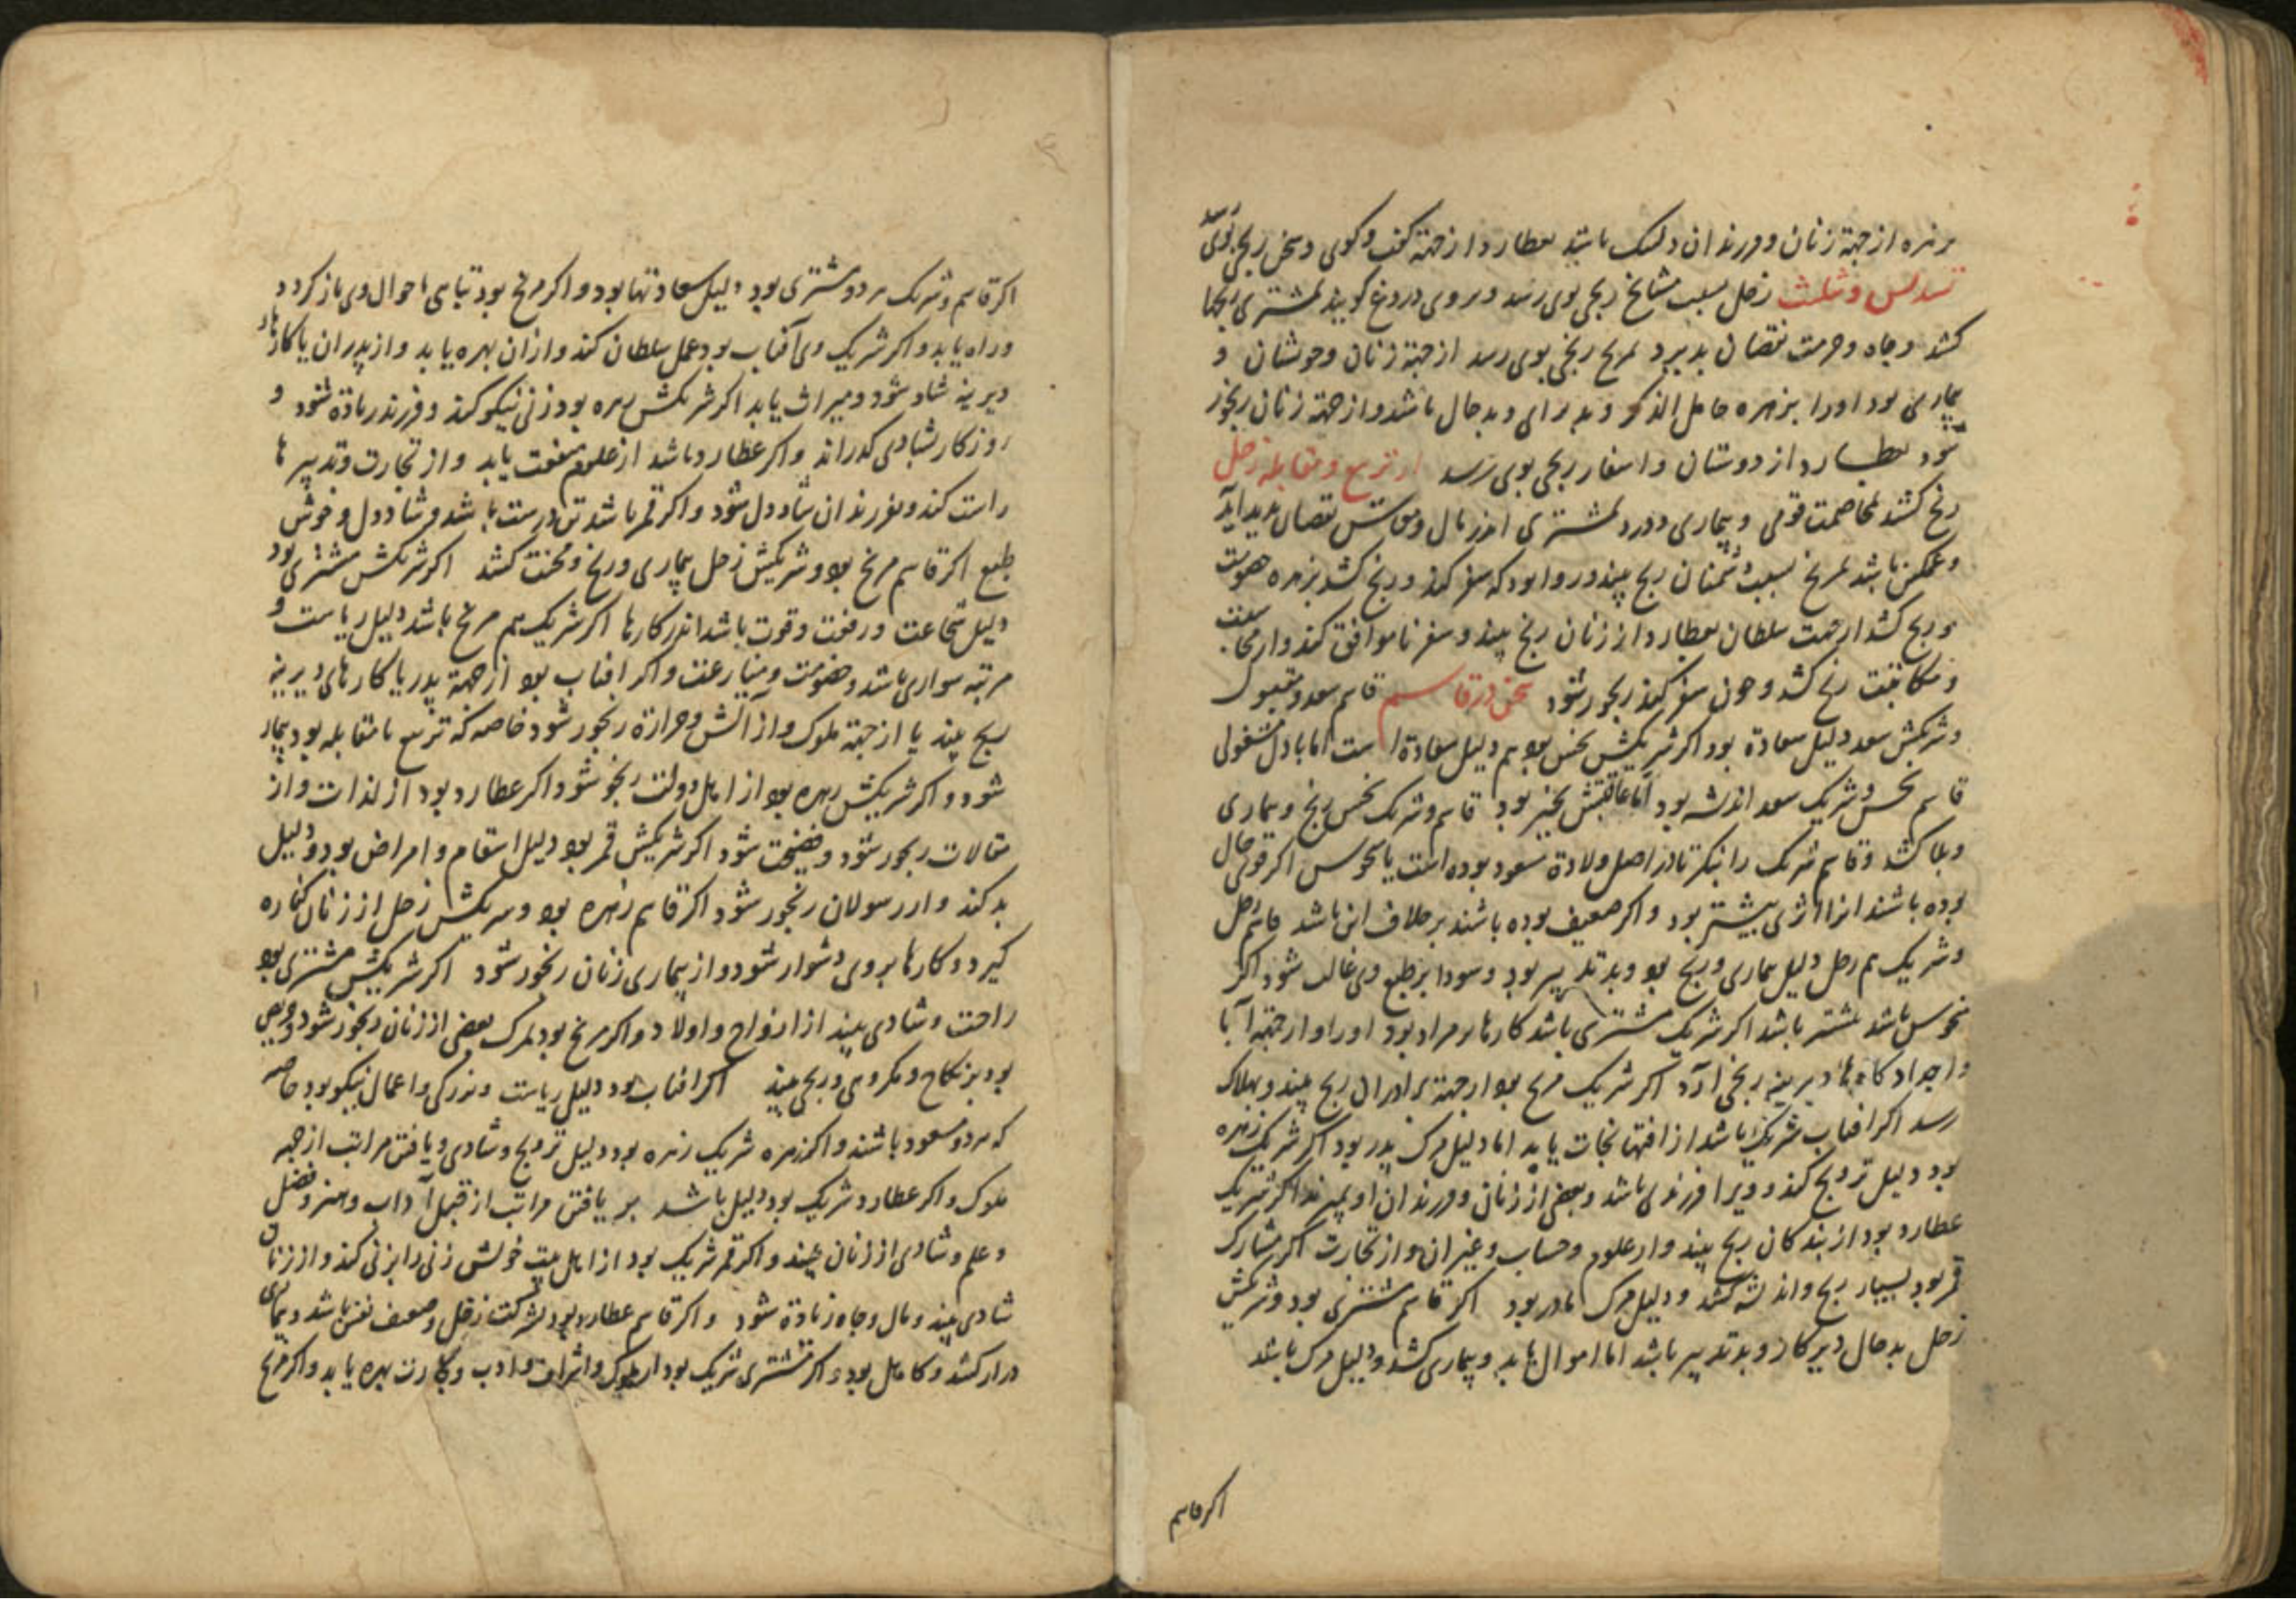 بزهره از جهة زنان و فرزندان دلتنک باشد بعطارد از جهة کفت و کوی و سخن رنجی بوی رسد
تسدیس و تثلیث زحل بسبب مشایخ رنجی بوی رسد و بروی دروغ کویند بمشتری رنجها
کشد و جاه و حرمت نقصان پذیرد بمریخ رنجی بوی رسد از جهة زنان و خویشان و
بیماری بود او را بزهره خامل الذکر و بد رای و بد حال باشد و از جهة زنان رنجور
شود بعطارد از دوستان و اسفار رنجی بوی رسد از تربیع و مقابله زحل
رنج کشد بمخاصمت قومی و بیماری و درد بمشتری اندر مال و معاش نقصان پدید آید
و غمکین باشد بمریخ بسبب دشمنان رنج بیند و روا بود که سفر کند و رنج کشد بزهره
و رنج کشد از جهت سلطان بعطارد از زنان رنج بیند و سفر ناموافق کند و از
و مکاتبت رنج کشد و چون سفر کند رنجور شود سخن در قاسم قاسم سعد و مقبول
و شریکش سعد دلیل سعادة بود اکر شریکش نحس بود هم دلیل سعادة است اما با دل مشغولی
قاسم نحس و شریک سعد اندیشه بود اما عاقبتش بخیر بود قاسم و شریک نحس رنج و بیماری
و بلا کشد و قاسم و شریک را بنکر تا در اصل ولادة مسعود بوده است یا منحوس اکر قوی حال
بوده باشند انرا اثری بیشتر بود و اکر ضعیف بوده باشند بر خلاف این باشد قاسم زحل
و شریک هم زحل دلیل بیماری و رنج بود و بد تدبیر بود و سودا بر طبع وی غالب شود اکر
منحوس باشد بتر باشد اکر شریک مشتری باشد کارها بر مراد بود او را و از جهة آبا
و اجداد و کارهاء دیرینه رنجی آرد اکر شریک مریخ بود از جهة برادران رنج بیند و بهلاک
رسد اکر افتاب شریک باشد از افتها نجات یابد اما دلیل مرک پدر بود اکر شریک زهره
بود دلیل تزویج کند و ویرا فرزندی باشد و بعضی از زنان و فرزندان او بمیرند اکر شریک
عطارد بود از بندکان رنج بیند و از علوم و حساب و غیر ان و از تجارت اکر مشارک
قمر بود بسیار رنج و اندیشه کشد و دلیل مرک مادر بود اکر قاسم مشتری بود و شریکش
زحل بد حال دیر کار و بد تدبیر باشد اما اموال یابد و بیماری کشد و دلیل مرک باشد
اکر قاسم
اکر قاسم و شریک هر دو مشتری بود دلیل سعادتها بود و اکر مریخ بود تباهی احوال وی باز کردد
و راه یابد و اکر شریک وی آفتاب بود عمل سلطان کند و از ان بهره یابد و از پدران یا کارهاء
دیرینه شاد شود و میراث یابد اکر شریکش زهره بود زنی نیکو کند و فرزند زیاده شود و
روزکار بشادی کذراند و اکر عطارد باشد از علوم منفعت یابد و از تجارت و تدبیرها
راست کند و بفرزندان شاد دل شود و اکر قمر باشد تن درست باشد و شاد دل و خوش
طبع اکر قاسم مریخ بود و شریکش زحل بیماری و رنج و محنت کشد اکر شریکش مشتری بود
دلیل شجاعت و رفعت و قوت باشد اندر کارها اکر شریک هم مریخ باشد دلیل ریاست و
مرتبه سواری باشد و خصومت و منازعت و اکر افتاب بود از جهة پدر یا کارهای دیرینه
رنج بیند یا از جهة ملوک و از آتش و حرارة رنجور شود خاصه که تربیع یا مقابله بود بیمار
شود و اکر شریکش زهره بود از اهل دولت رنجور شود اکر عطارد بود از لذات و از
مقالات رنجور شود و فضیحت شود اکر شریکش قمر بود دلیل اسقام و امراض بود و دلیل
بد کند و از رسولان رنجور شود اکر قاسم زهره بود و شریکش زحل از زنان کناره
کیرد و کارها بروی دشوار شود و از بیماری زنان رنجور شود اکر شریکش مشتری بود
راحت و شادی بیند از ازواج و اولاد و اکر مریخ بود بمرک بعضی از زنان رنجور شود و حریص
بود بر نکاح و مکروهی و رنجی بیند اکر افتاب بود دلیل ریاست و بزرکی و اعمال نیکو بود خاصه
که هر دو مسعود باشند و اکر زهره شریک زهره بود دلیل تزویج و شادی و یافتن مراتب از جهة
ملوک و اکر عطارد شریک بود دلیل باشد بر یافتن مراتب از قبل آداب و هنر و فضل
و علم و شادی از زنان بیند و اکر قمر شریک بود از اهل بیت خویش زنی را بزنی کند و از زنان
شادی بیند و مال و جاه زیادة شود و اکر قاسم عطارد بود بشرکت زحل ضعف نفس باشد و بیماری
دراز کشد و کاهل بود و اکر مشتری شریک بود از ملوک و اشراف و ادب و تجارت بهره یابد و اکر مریخ